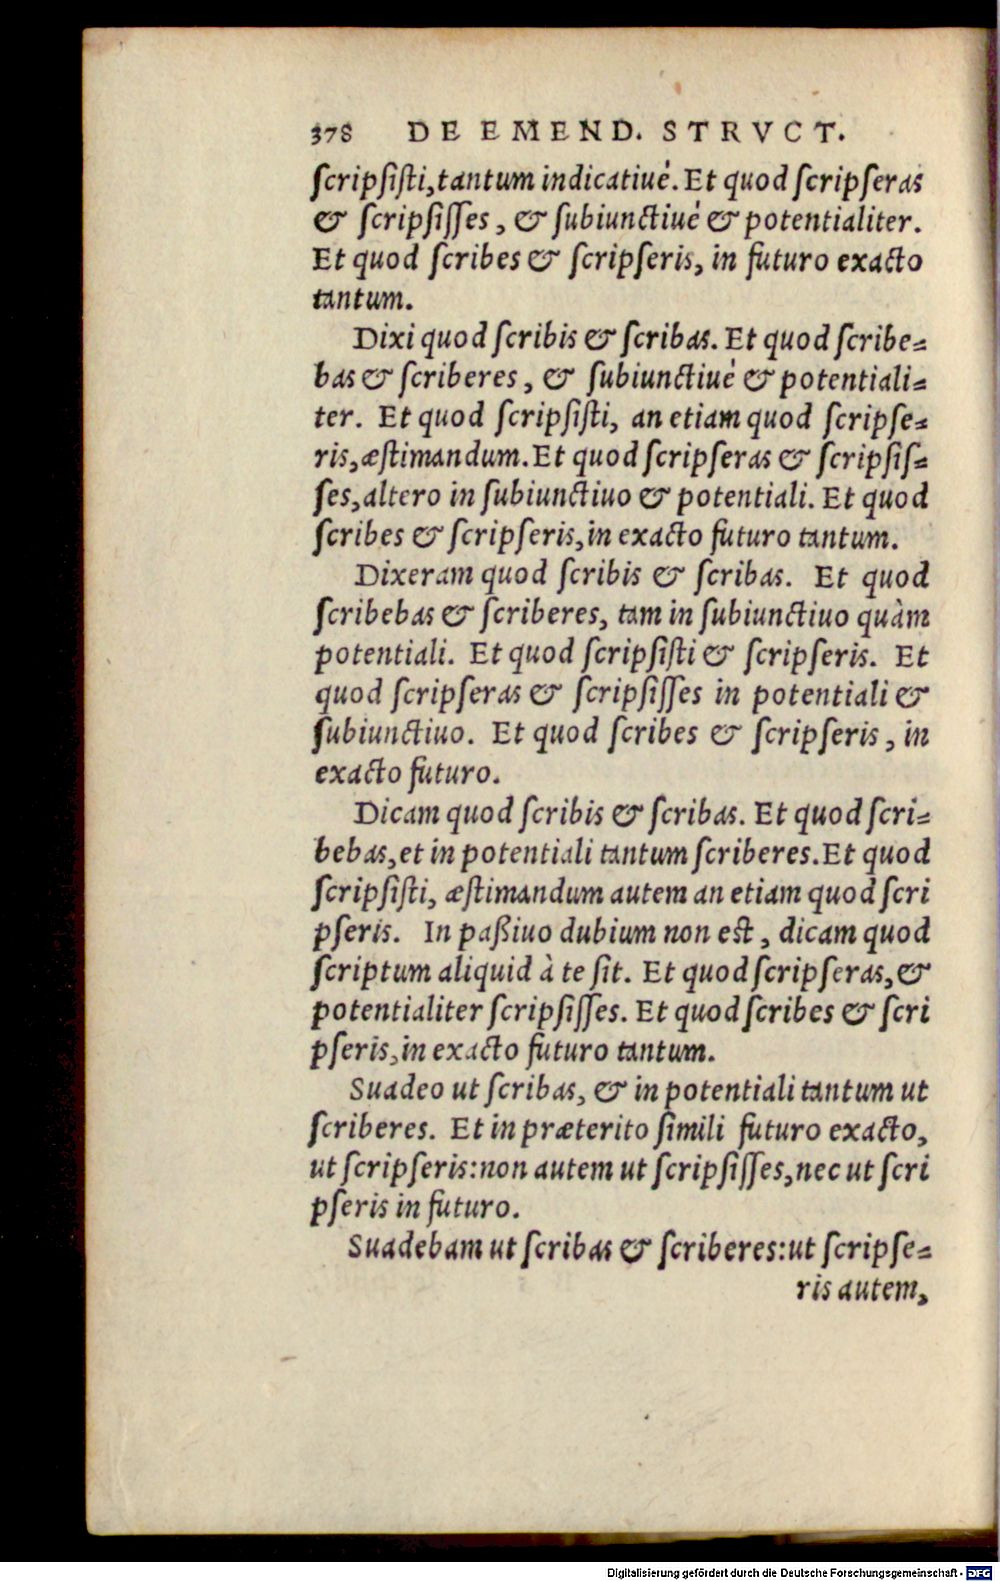 378 DE EMEND. STRVCT.
ſcripſiſti, tantum indicatiuè. Et quod ſcripſeras
& ſcripſiſſes, & ſubiunctiuè & potentialiter.
Et quod ſcribes & ſcripſeris, in futuro exacto
tantum.
Dixi quod ſcribis & ſcribas. Et quod ſcribe=
bas & ſcriberes, & ſubiunctiuè & potentiali=
ter. Et quod ſcripſiſti, an etiam quod ſcripſe=
ris, æſtimandum. Et quod ſcripſeras & ſcripſiſ=
ſes, altero in ſubiunctiuo & potentiali. Et quod
ſcribes & ſcripſeris, in exacto futuro tantum.
Dixeram quod ſcribis & ſcribas. Et quod
ſcribebas & ſcriberes, tam in ſubiunctiuo quàm
potentiali. Et quod ſcripſiſti & ſcripſeris. Et
quod ſcripſeras & ſcripſiſſes in potentiali &
ſubiunctiuo. Et quod ſcribes & ſcripſeris, in
exacto futuro.
Dicam quod ſcribis & ſcribas. Et quod ſcri=
bebas, et in potentiali tantum ſcriberes. Et quod
ſcripſiſti, æſtimandum autem an etiam quod ſcri
pſeris. In paßiuo dubium non est, dicam quod
ſcriptum aliquid à te ſit. Et quod ſcripſeras, &
potentialiter ſcripſiſſes. Et quod ſcribes & ſcri
pſeris, in exacto futuro tantum.
Suadeo ut ſcribas, & in potentiali tantum ut
ſcriberes. Et in præterito ſimili futuro exacto,
ut ſcripſeris: non autem ut ſcripſiſſes, nec ut ſcri
pſeris in futuro.
Suadebam ut ſcribas & ſcriberes: ut ſcripſe=
ris autem,
Digitalisierung gefördert durch die Deutsche Forschungsgemeinschaft - DFG